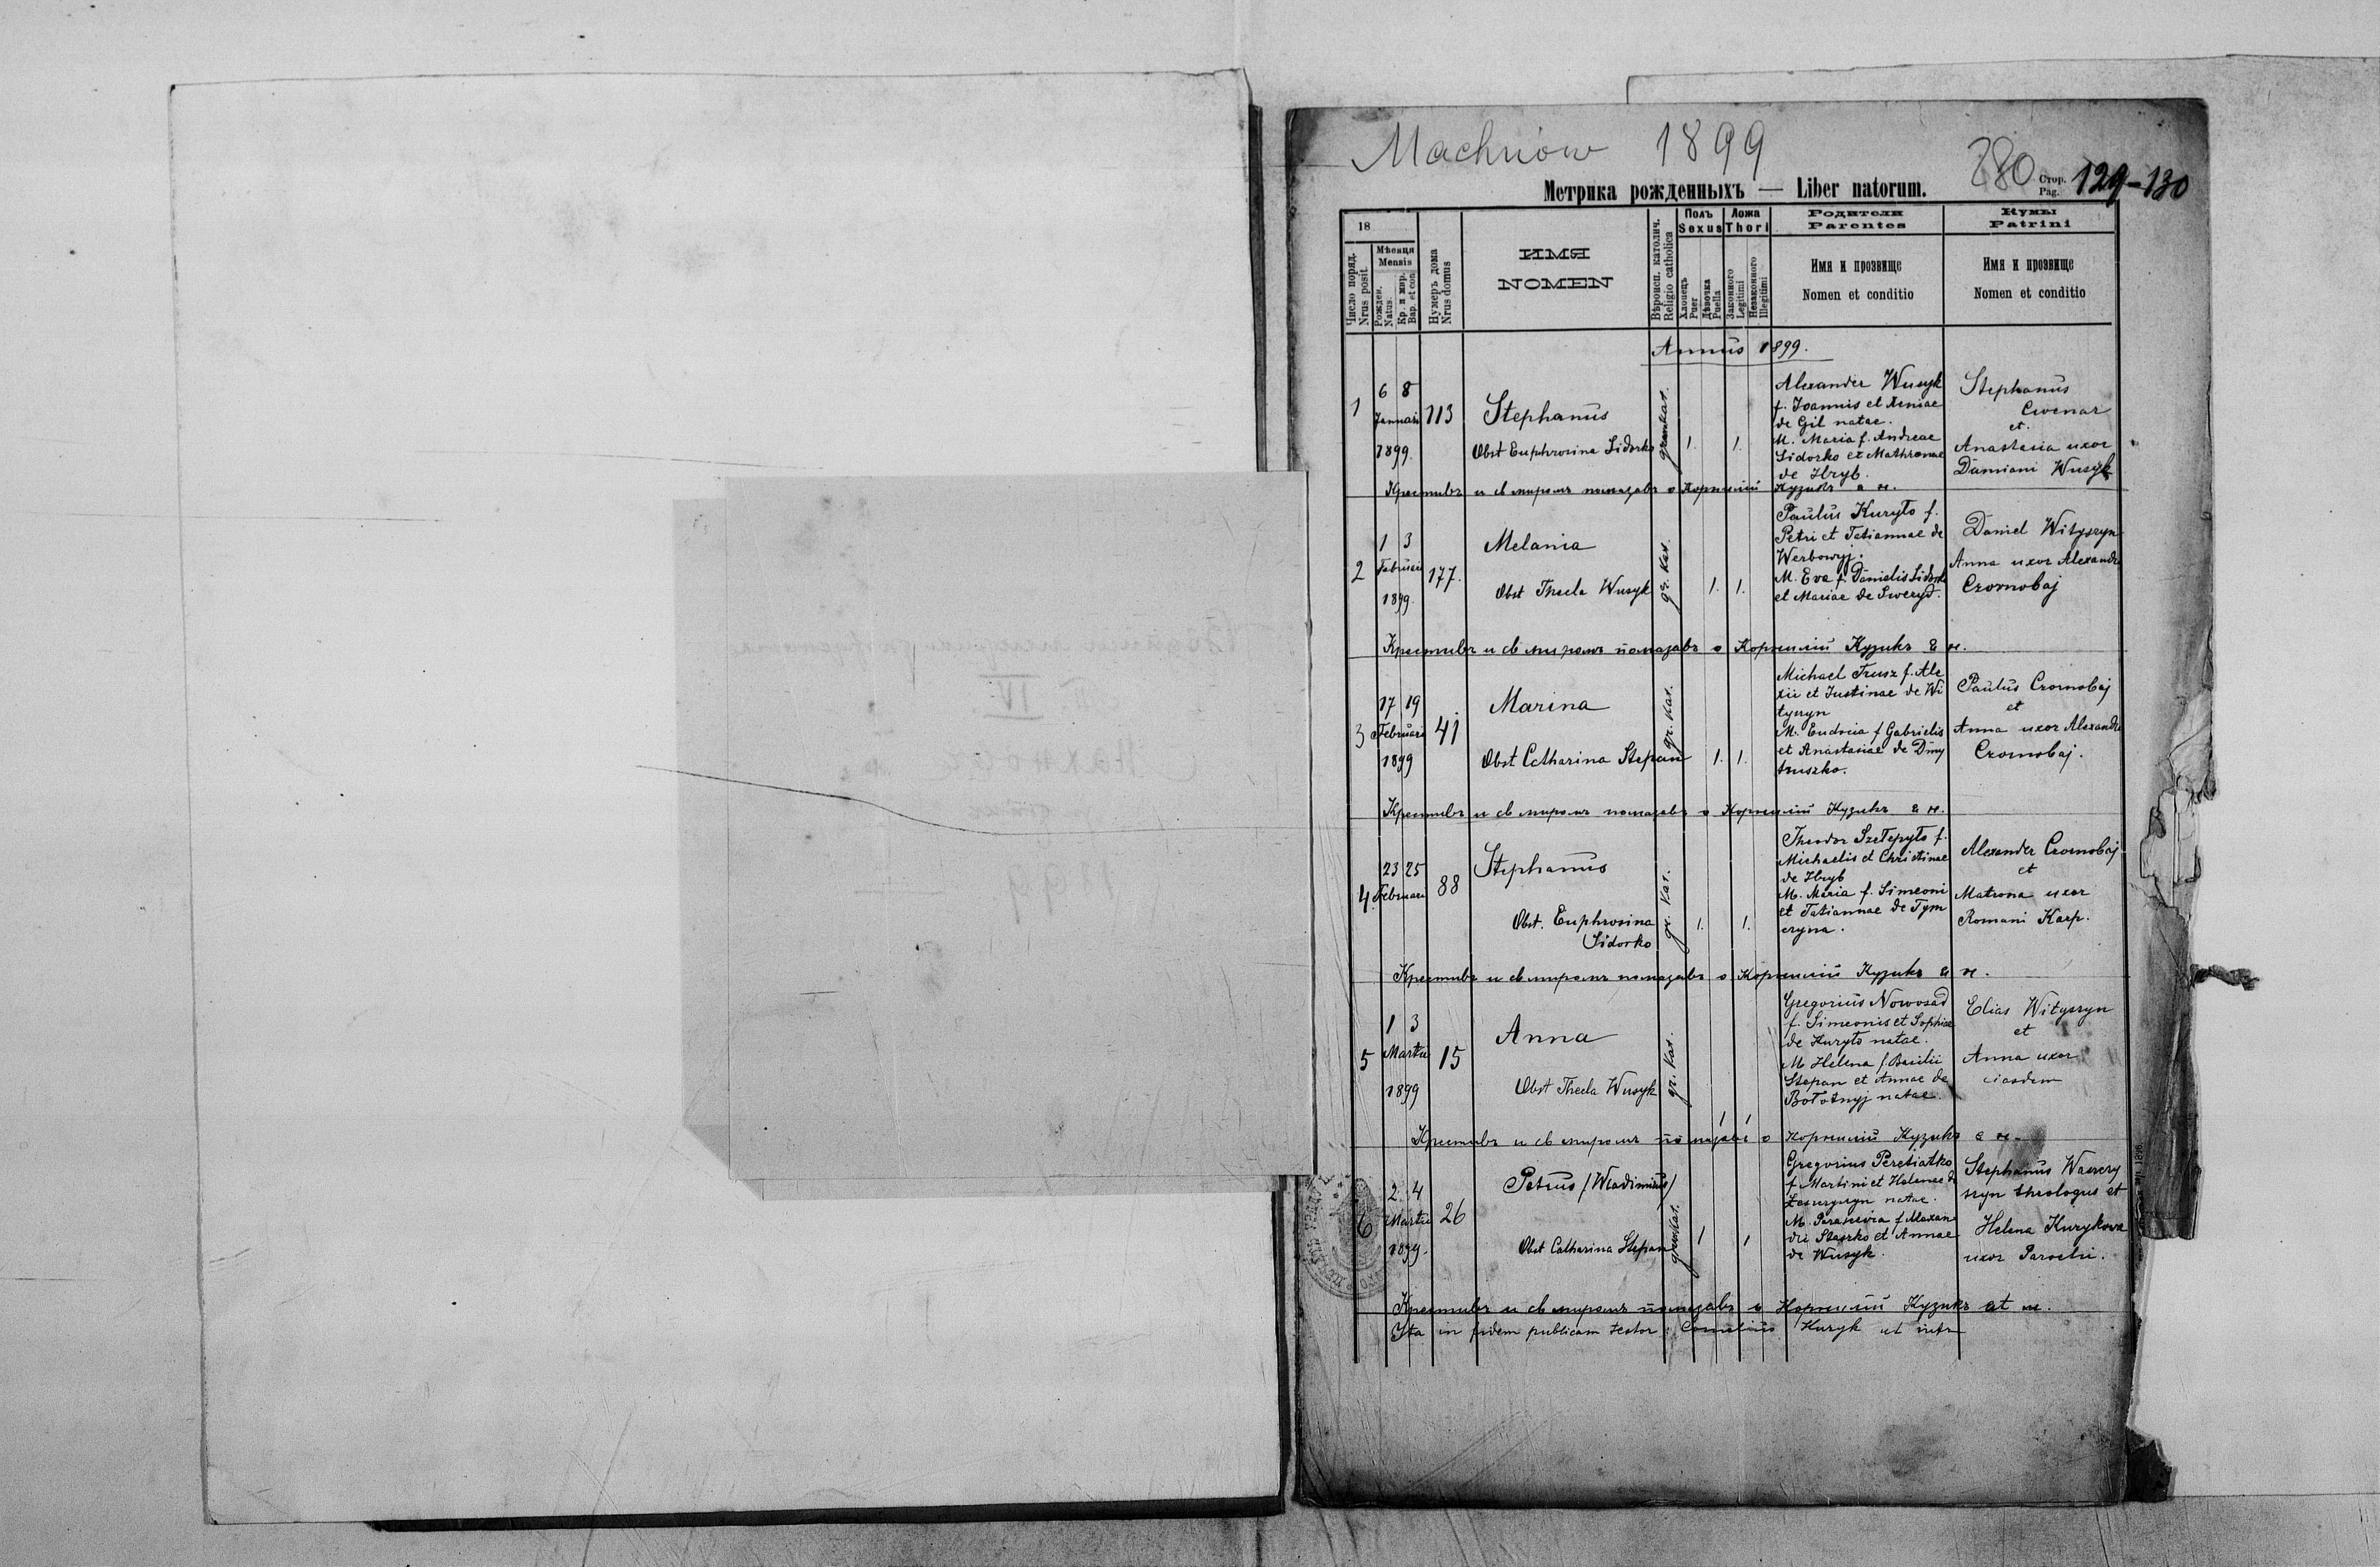 Machniow 1899
280
Стор. Pag. 129-130
Метрика рожденныхъ — Liber natorum.
18
Число поряд. Nrus posit.
Мѣсяця Mensis
Рожден. Natus.
Кр. и мир. Bap. et con.
Нумеръ дома Nrus domus
ИМЯ
NOMEN
Вѣроисп. католич. Religio catholica
Полъ Sexus
Хлопецъ Puer
Дѣвочка Puella
Ложа Thori
Законного Legitimi
Незаконного Illegitimi
Родители Parentes
Имя и прозвище
Nomen et conditio
Кумы Patrini
Имя и прозвище
Nomen et conditio
Annus 1899.
1
6 8
Januarii
1899.
113
Stephanus
Obst Euphrosina Sidorko
1. 1.
Alexander Wusyk
f. Joannis et Xeniae
de Gil natae.
M. Maria f. Andreae
Sidorko et Mathronae
de Hryb.
Stephanus
et.
Anastasia uxor
Damiani Wusyk
Крестивъ и св миромъ помазавъ о Корнилій Кузикъ
2
1 3
Februarii
1899.
177.
Melania
Obst Thecla Wusyk
gr. Kat.
1. 1.
Paulus Kuryło f.
Petri et Tatiannae de
Werbowyj.
M. Eva f. Danielis Sidorko
et Mariae de Sweryd.
Daniel Wityszyn
Anna uxor Alexandri
Czornobaj
Крестивъ и св миромъ помазавъ о Корнилій Кузикъ
3
17 19
Februarii
1899
41
Marina
Obst Catharina Stepan
gr. Kat.
1. 1.
Michael Trusz f. Ale
xii et Justinae de Wi
tyszyn
M. Eudocia f Gabrielis
et Anastasiae de Dmy
truszko.
Paulus Czornobaj
et
Anna uxor Alexandri
Czornobaj.
Крестивъ и св миромъ помазавъ о Корнилій Кузикъ
4.
23 25
Februarii
88
Stephanus
Obst. Euphrosina
Sidorko
gr. Kat.
1. 1.
Theodor Szełepyło f.
Michaelis et Christinae
de Hryb
M. Maria f. Simeoni
et Tatiannae de Tym
czyna.
Alexander Czornobaj
et
Matrona uxor
Romani Karp.
Крестивъ и св миромъ помазавъ о Корнилій Кузикъ
5
1 3
Martii
1899
15
Anna
Obst Thecla Wusyk
gr. Kat.
1 1
Gregorius Nowosad
f. Simeonis et Sophiae
de Kuryło natae.
M Helena f. Basilii
Stepan et Annae de
Bołotnyj natae.
Elias Wityszyn
et
Anna uxor
eiusdem
Крестивъ и св миромъ помазавъ о Корнилій Кузикъ
6
2 4
Martii
1899.
26
Petrus /Wladimirus/
Obst Catharina Stepan
1 1
Gregorius Peretiatko
f. Martini et Helenae de
natae.
M. Parascevia f Alexan
dri Staszko et Annae
de Wusyk.
Stephanus
theologus et
Helena Kuzykowa
uxor Parochi.
Крестивъ и св миромъ помазавъ о Корнилій Кузикъ
Ita in fidem publicam testor: Cornelius Kuzyk ut infr